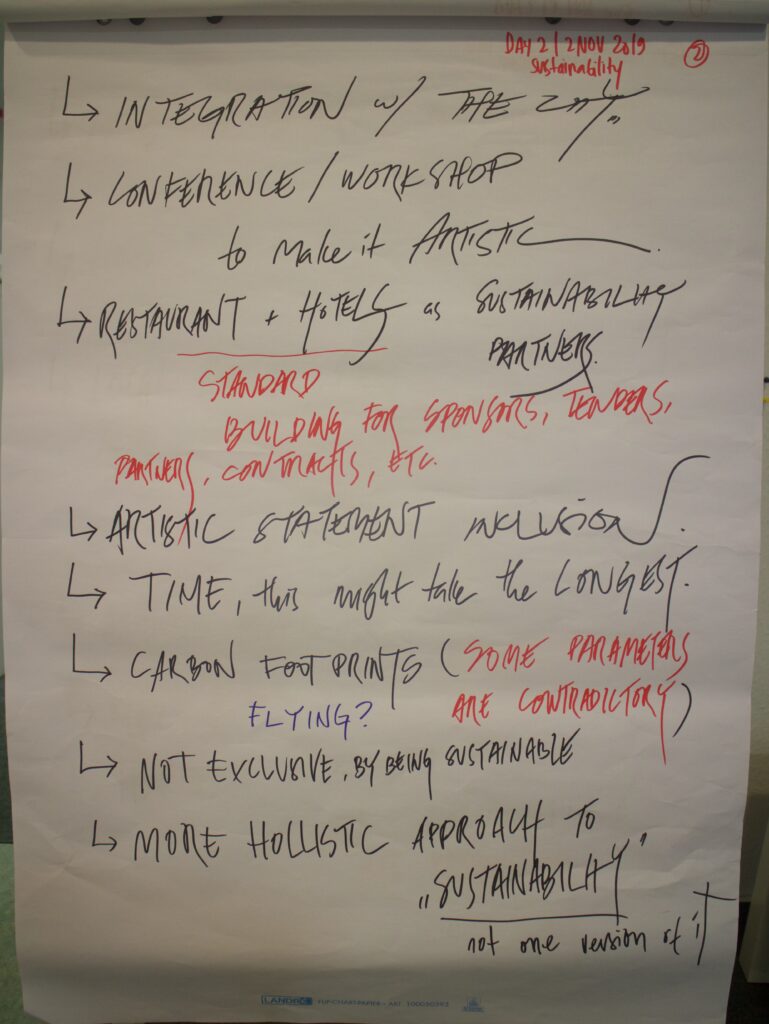 DAY 2 | 2 NOV 2019
Sustainability
②
↳ INTEGRATION w/ THE CITY„
↳ CONFERENCE / WORKSHOP
to make it ARTISTIC
↳ RESTAURANT + HOTELS as SUSTAINABILITY
PARTNERS.
STANDARD
BUILDING FOR SPONSORS, TENDERS,
PARTNERS, CONTRACTS, ETC.
↳ ARTISTIC STATEMENT INCLUSION.
↳ TIME, this might take the LONGEST.
↳ CARBON FOOTPRINTS (SOME PARAMETERS
FLYING? ARE CONTRADICTORY)
↳ NOT EXCLUSIVE, BY BEING SUSTAINABLE
↳ MORE HOLLISTIC APPROACH TO
„SUSTAINABILITY"
not one version of it
LANDRÉ FLIPCHART-PAPIER - ART. 100050592